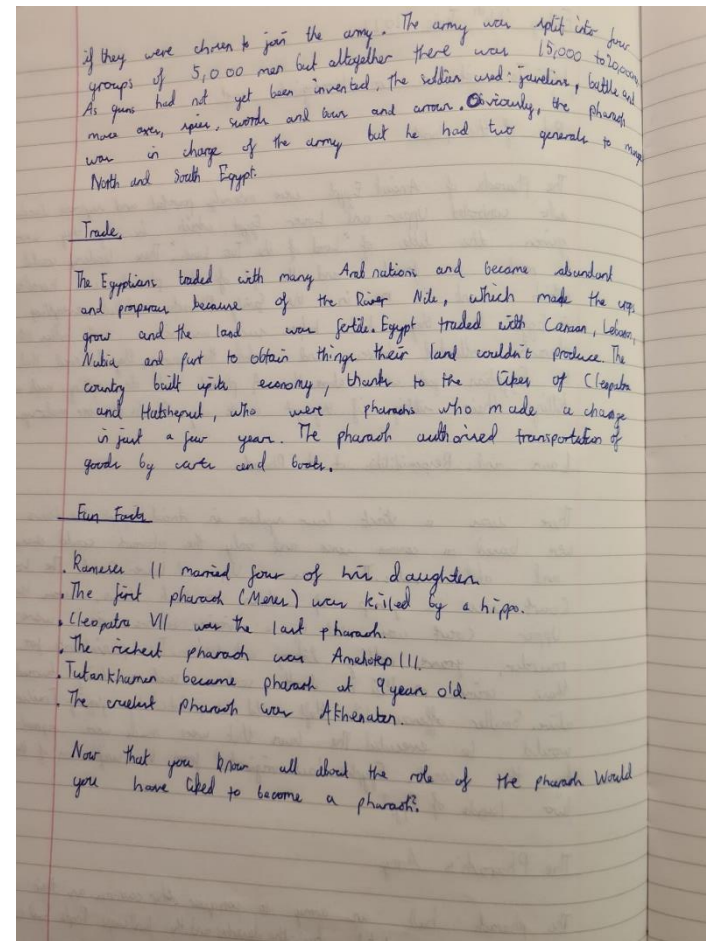 if they were chosen to join the army. The army was split into four
groups of 5,000 men but altogether there was 15,000 to 20,000
As guns had not yet been invented, the soldiers used: javelins, battle and
mace axes, spies, swords and bows and arrows. Obviously, the pharaoh
was in charge of the army but he had two generals to manage
North and South Egypt.
Trade.
The Egyptians traded with many Arab nations and became abundant
and prosperous because of the River Nile, which made the crops
grow and the land was fertile. Egypt traded with Canaan, Lebanon,
Nubia and Punt to obtain things their land couldn't produce. The
country built up its economy, thanks to the likes of Cleopatra
and Hatshepsut, who were pharaohs who made a change
in just a few years. The pharaoh authorised transportation of
goods by carts and boats.
Fun Facts
. Rameses II married four of his daughters.
. The first pharaoh (Menes) was killed by a hippo.
. Cleopatra VII was the last pharaoh.
. The richest pharaoh was Amehotep III.
. Tutankhamen became pharaoh at 9 years old.
. The cruelest pharaoh was Akhenaten.
Now that you know all about the role of the pharaoh Would
you have liked to become a pharaoh?